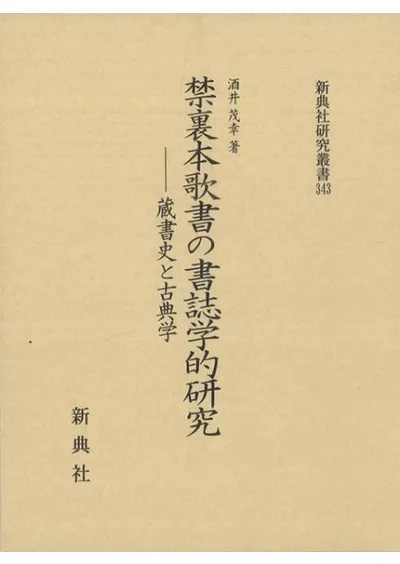 新典社研究叢書 343
酒井 茂幸 著
禁裏本歌書の書誌学的研究
――蔵書史と古典学
新典社